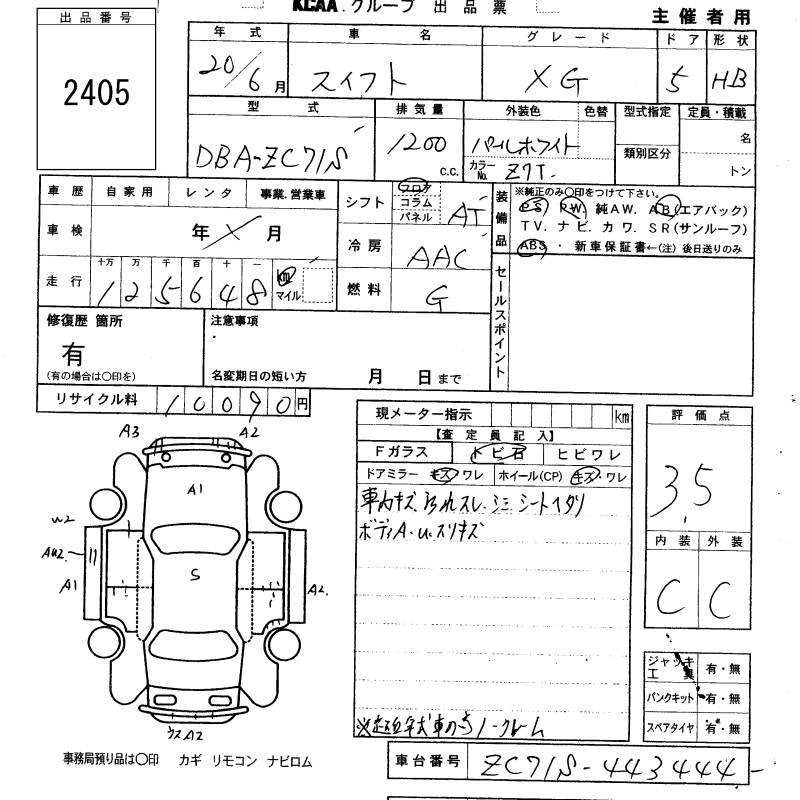 KCAA.グループ 出品票
主催者用
出品番号
2405
年式 車名 グレード ドア 形状
20/6月 スイフト XG 5 HB
型式 排気量 外装色 色替 型式指定 定員・積載
DBA-ZC71S 1200 c.c. パールホワイト 名
カラーNo. Z7T. 類別区分 トン
車歴 自家用 レンタ 事業.営業車
車検 年 月
走行 十万 万 千 百 十 一
125648 km マイル
シフト フロア コラム パネル AT
冷房 AAC
燃料 G
装備品 ※純正のみ〇印をつけて下さい。
PS PW. 純AW. AB(エアバック)
TV. ナビ. カワ. SR(サンルーフ)
ABS・ 新車保証書←(注)後日送りのみ
セールスポイント
修復歴 箇所
有
(有の場合は〇印を)
注意事項
名変期日の短い方 月 日まで
リサイクル料 10090円
現メーター指示 km
【査定員記入】
Fガラス トビ石 ヒビワレ
ドアミラー キズ ワレ ホイール(CP) キズ・ワレ
車内キズ. スレ. シミ シートイタリ
ボディA・U.スリキズ
評価点
3.5
内装 外装
C C
A3 A2
A1
W2
AW2.
A1
S
A2.
A2
ジャッキ工具 有・無
パンクキット 有・無
スペアタイヤ 有・無
ノークレーム
事務局預り品は〇印 カギ リモコン ナビロム
車台番号 ZC71S-443444-